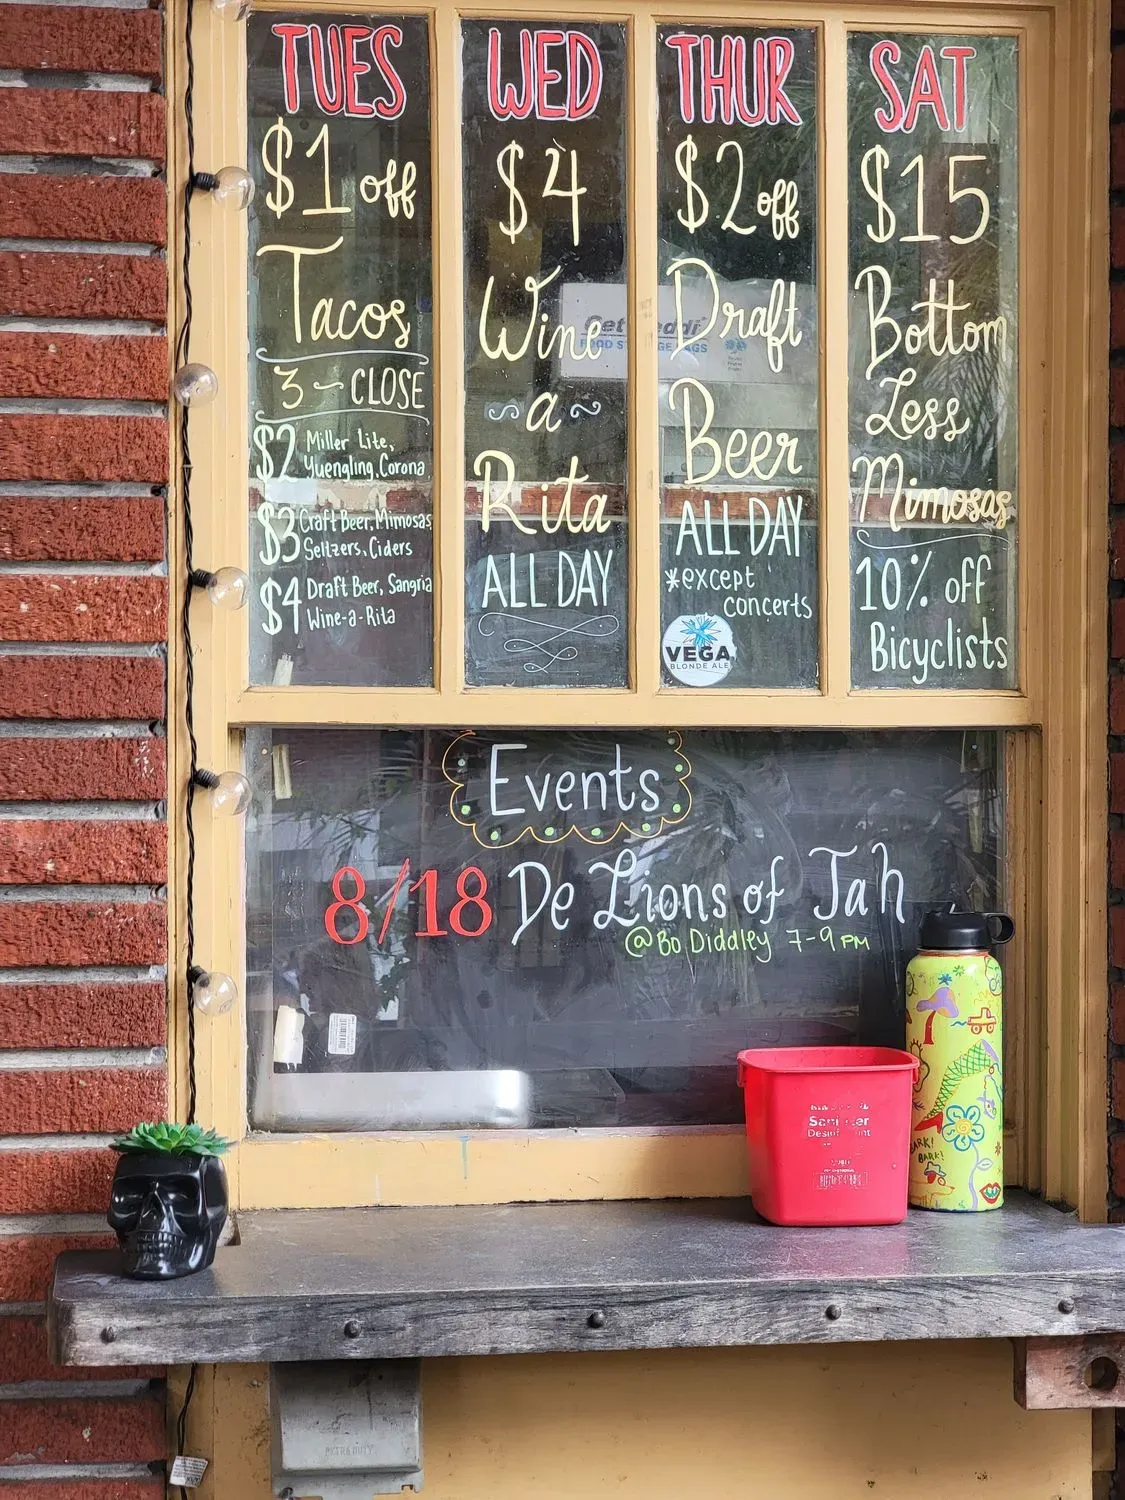 TUES
$1 off
Tacos
3 - CLOSE
$2 Miller Lite,
Yuengling, Corona
$3 Craft Beer, Mimosas,
Seltzers, Ciders
$4 Draft Beer, Sangria
Wine-a-Rita
WED
$4
Wine
a
Rita
ALL DAY
THUR
$2 off
Draft
Beer
ALL DAY
*except
concerts
VEGA
BLONDE ALE
SAT
$15
Bottom
Less
Mimosas
10% off
Bicyclists
Events
8/18 De Lions of Jah
@ Bo Diddley 7-9 PM
BARK!
BARK!